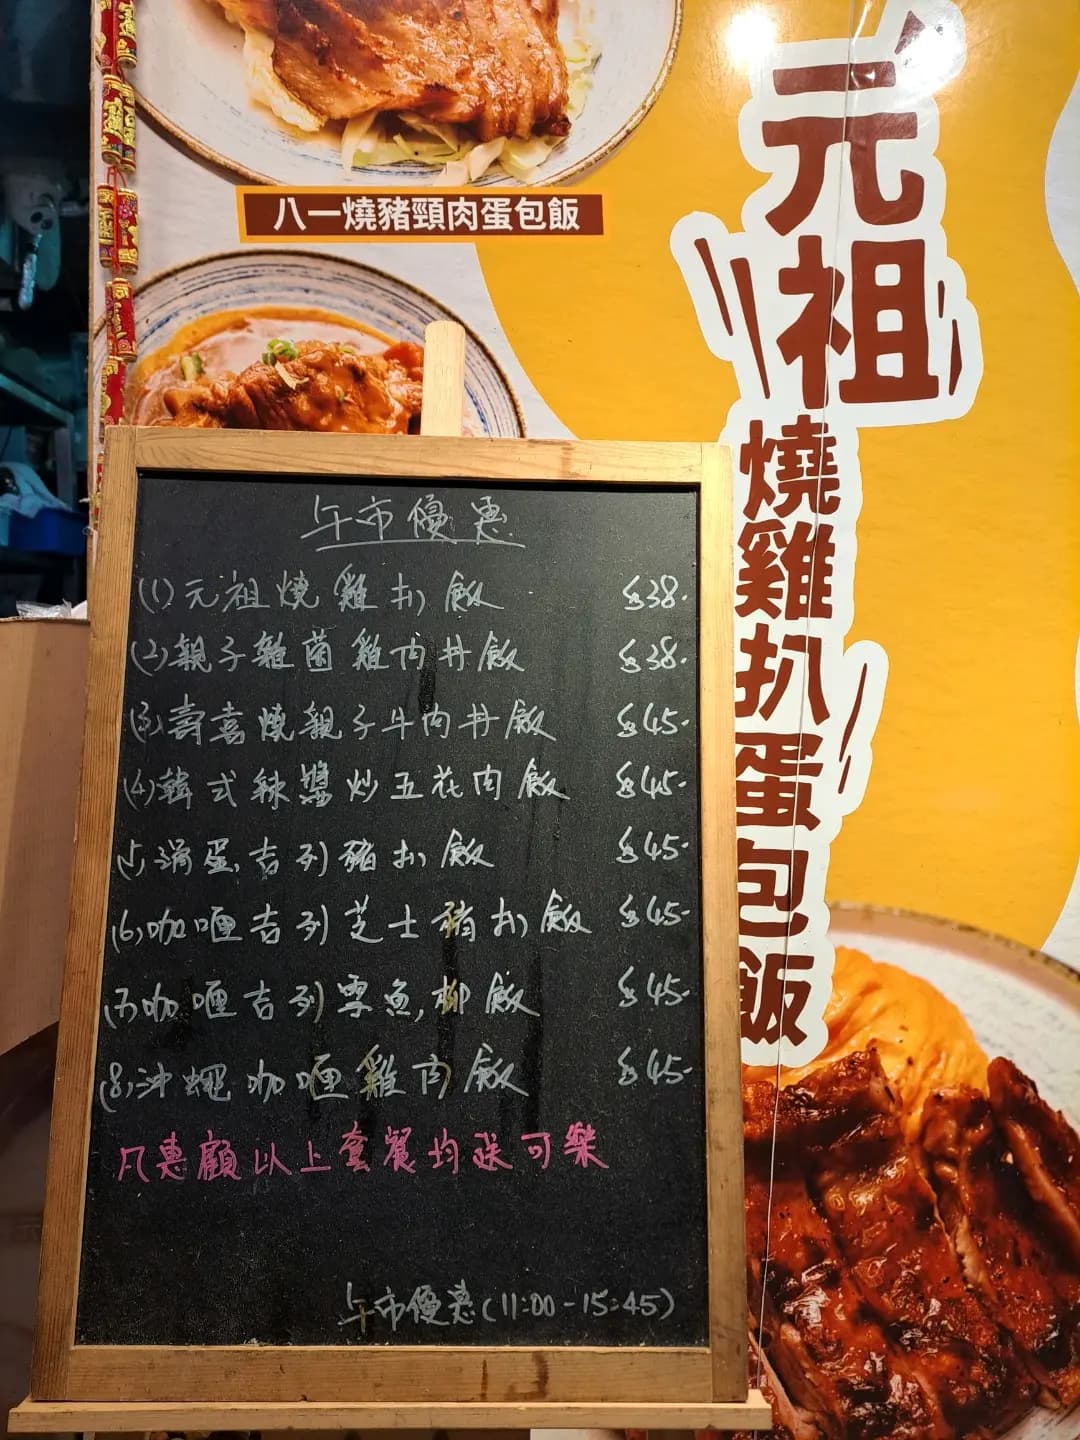 八一燒豬頸肉蛋包飯
元祖
燒雞扒蛋包飯
午市優惠
(1) 元祖燒雞扒飯 $38.
(2) 親子雜菌雞肉丼飯 $38.
(3) 壽喜燒親子牛肉丼飯 $45-
(4) 韓式辣醬炒五花肉飯 $45-
(5) 滑蛋吉列豬扒飯 $45-
(6) 咖喱吉列芝士豬扒飯 $45-
(7) 咖喱吉列雪魚柳飯 $45-
(8) 沖繩咖喱雞肉飯 $45-
凡惠顧以上套餐均送可樂
午市優惠(11:00-15:45)